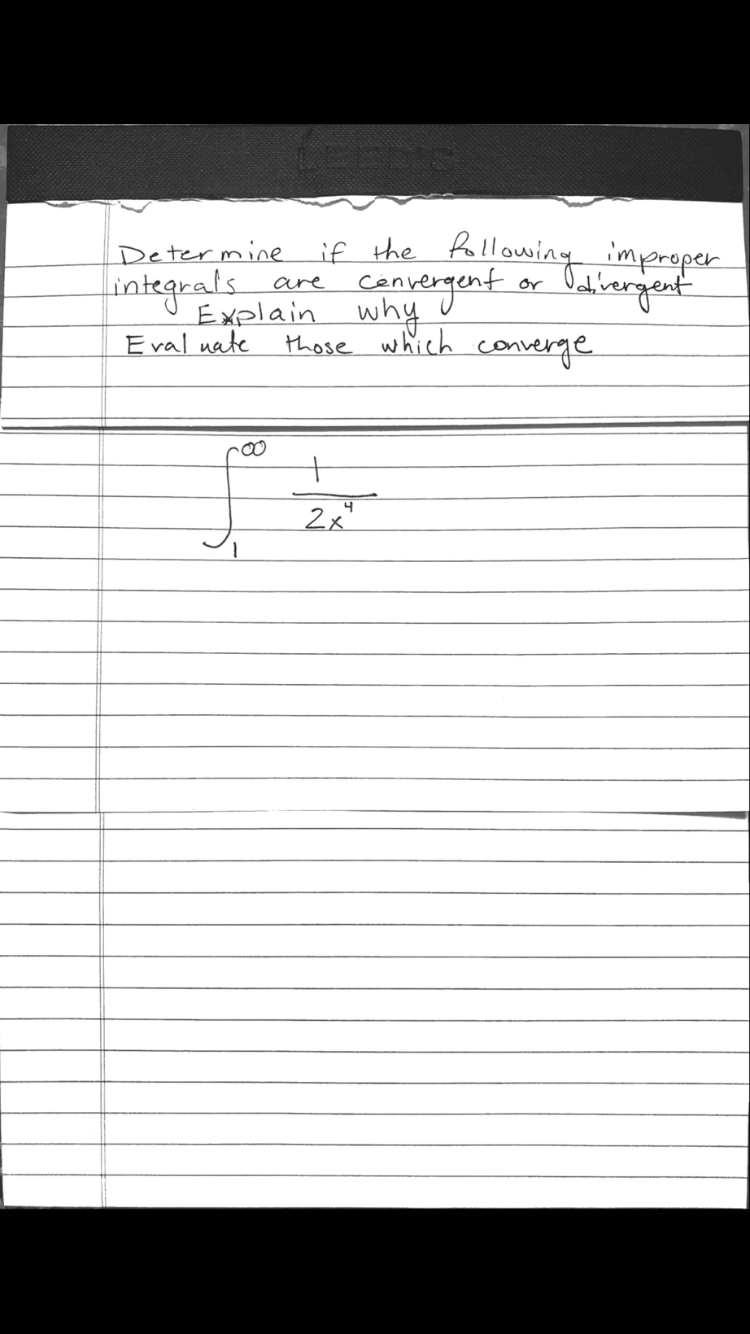 LEED'S
Determine if the following improper
integrals are convergent or divergent
Explain why
Evaluate those which converge
∫₁^∞ 1/(2x⁴)